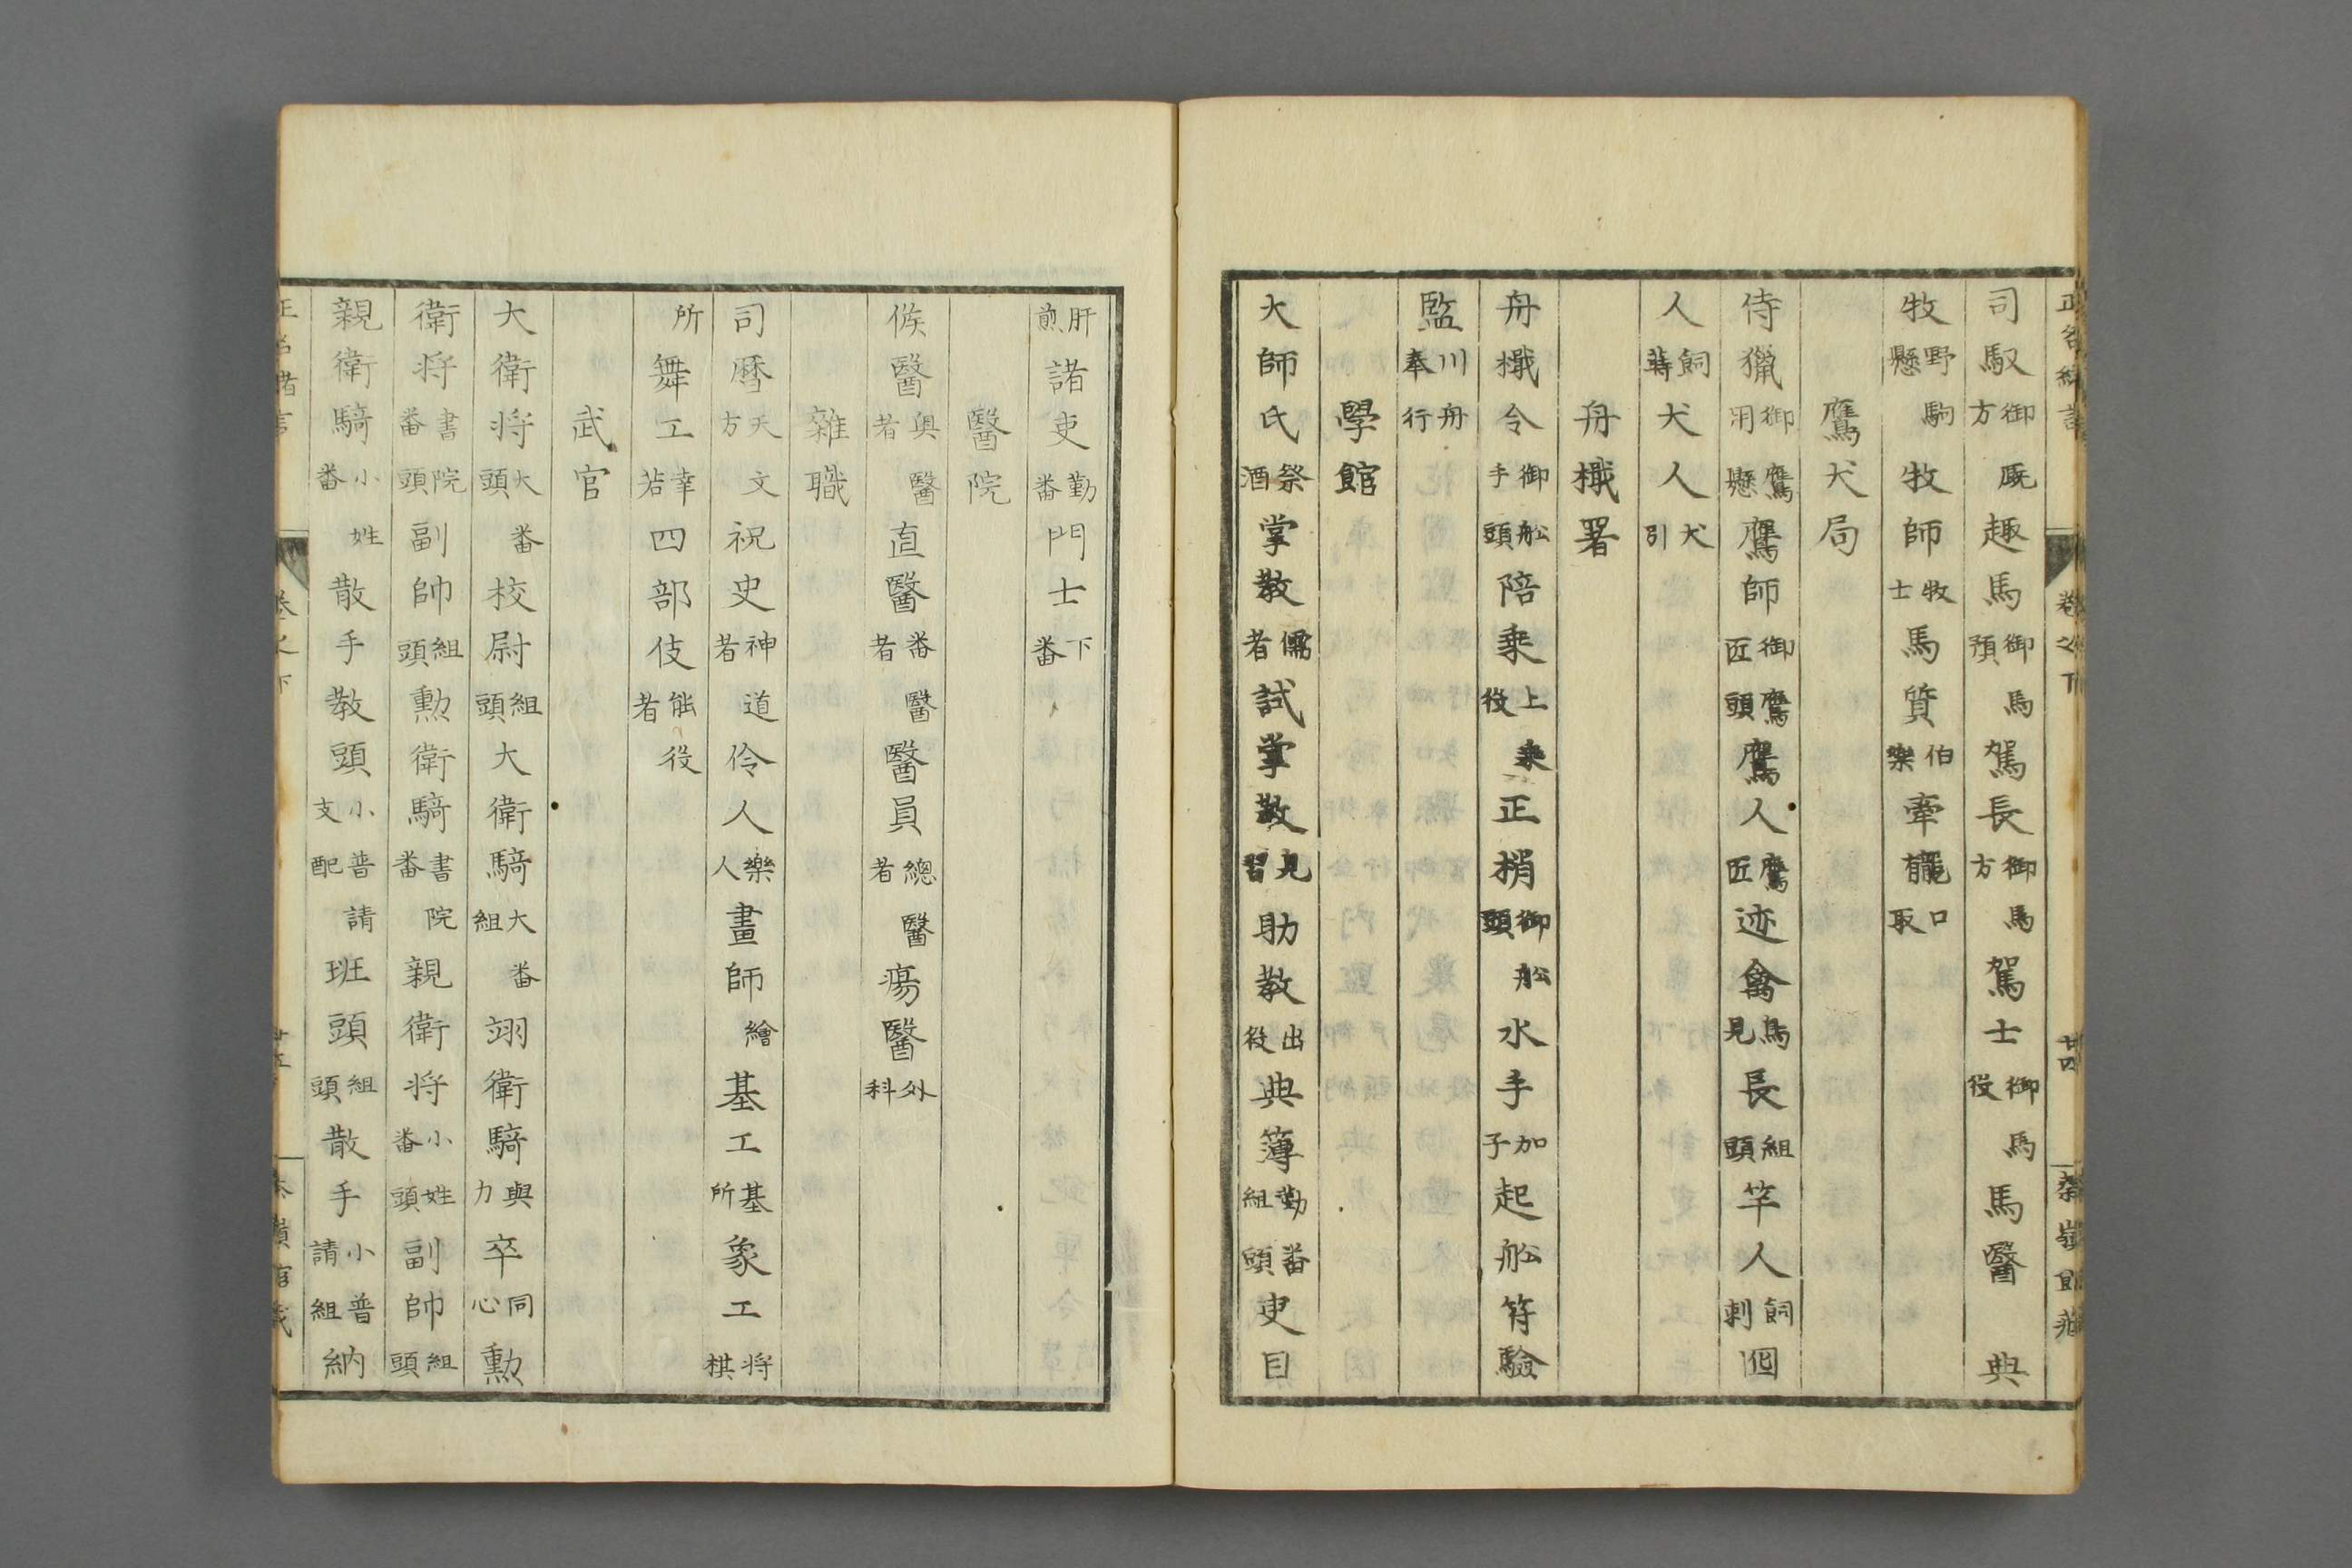 司馭御厩方趣馬御馬預駕長御馬方駕士御馬役馬醫典
牧野駒懸牧師牧士馬質伯樂牽龓口取
鷹犬局
侍獵御鷹用懸鷹師御鷹匠頭鷹人鷹匠迹禽鳥見長組頭竿人飼刺囮
人飼蒔犬人犬引
舟檝署
舟檝令御舩手頭陪乗上乘役正梢御舩頭水手加子起舩符驗
監川舟奉行
學館
大師氏祭酒掌教儒者試掌教見習助教出役典簿勤番組頭吏目
肝煎諸吏勤番門士下番
醫院
候醫奥醫者直醫番醫者醫員總醫者瘍醫外科
雜職
司暦天文方祝史神道者伶人樂人畫師繪基工基所象工将棋
所舞工幸若四部伎能役者
武官
大衛将大番頭校尉組頭大衛騎大番組翊衛騎與力卒同心勲
衛将書院番頭副帥組頭勲衛騎書院番親衛将小姓番頭副帥組頭
親衛騎小姓番散手教頭小普請支配班頭組頭散手小普請組納
卷之下